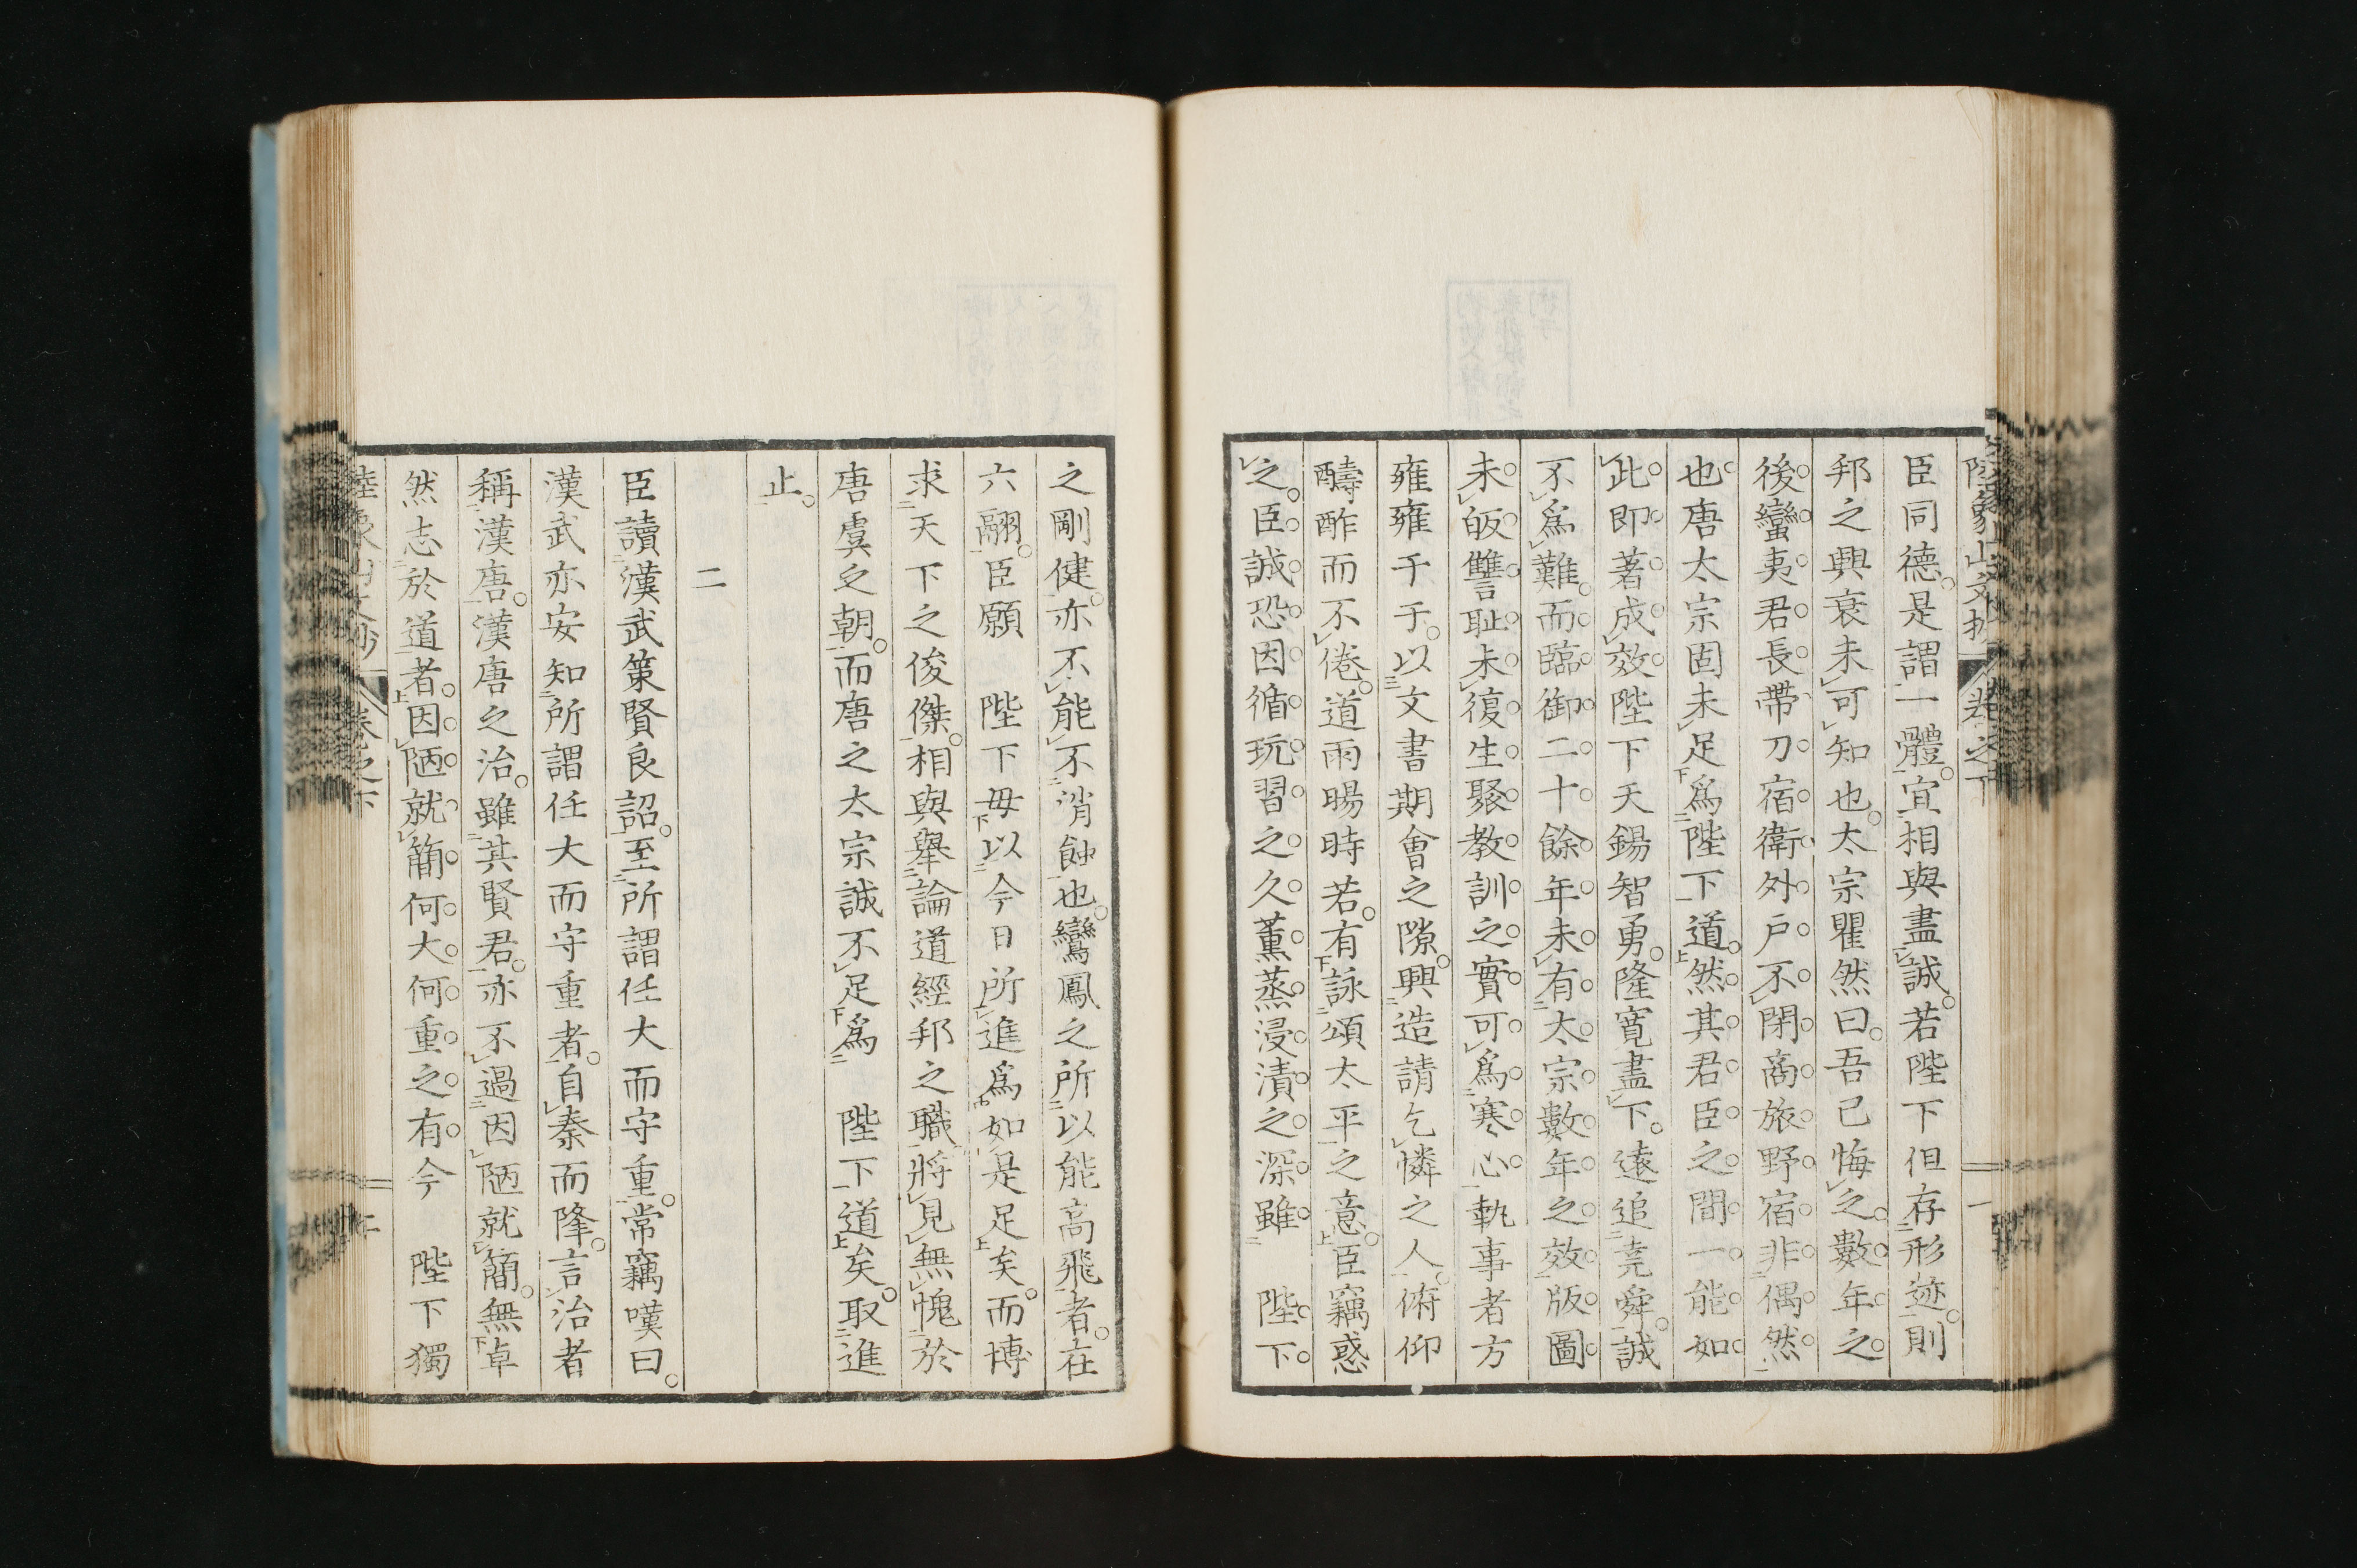 臣同德。是謂一體。宜相與盡誠。若陛下但存形迹。則
邦之興衰未可知也。太宗瞿然曰。吾已悔之。數年之
後。蠻夷君長帶刀宿衛。外戶不閉。商旅野宿。非偶然
也。唐太宗固未足爲陛下道。然其君臣之間。一能如
此。即著成效。陛下天錫智勇。隆寬盡下。遠追堯舜。誠
不爲難。而臨御二十餘年。未有太宗數年之效。版圖
未皈。讐耻未復。生聚教訓之實。可爲寒心。執事者方
雍雍于于。以文書期會之隙。興造請乞憐之人。俯仰
醻酢而不倦。道雨暘時若。有詠頌太平之意。臣竊惑
之。臣誠恐因循玩習之久。薰蒸浸漬之深。雖 陛下
之剛健。亦不能不消蝕也。鸞鳳之所以能高飛者。在
六翮。臣願 陛下毋以今日所進爲如是足矣。而博
求天下之俊傑。相與舉論道經邦之職。將見無愧於
唐虞之朝。而唐之太宗誠不足爲 陛下道矣。取進
止。
二
臣讀漢武策賢良詔。至所謂任大而守重。常竊嘆曰。
漢武亦安知所謂任大而守重者。自秦而降。言治者
稱漢唐。漢唐之治。雖其賢君。亦不過因陋就簡。無卓
然志於道者。因陋就簡。何大何重之有。今 陛下獨
卷之下